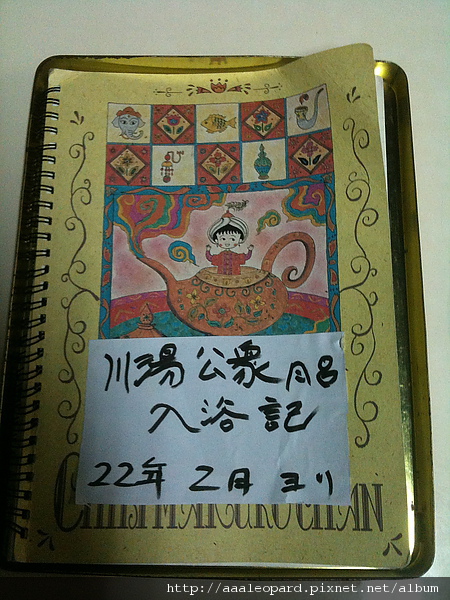 川湯公衆風呂
入浴記
22年 2月 ヨリ
CHIBI MARUKO CHAN
http://aaaleopard.pixnet.net/album